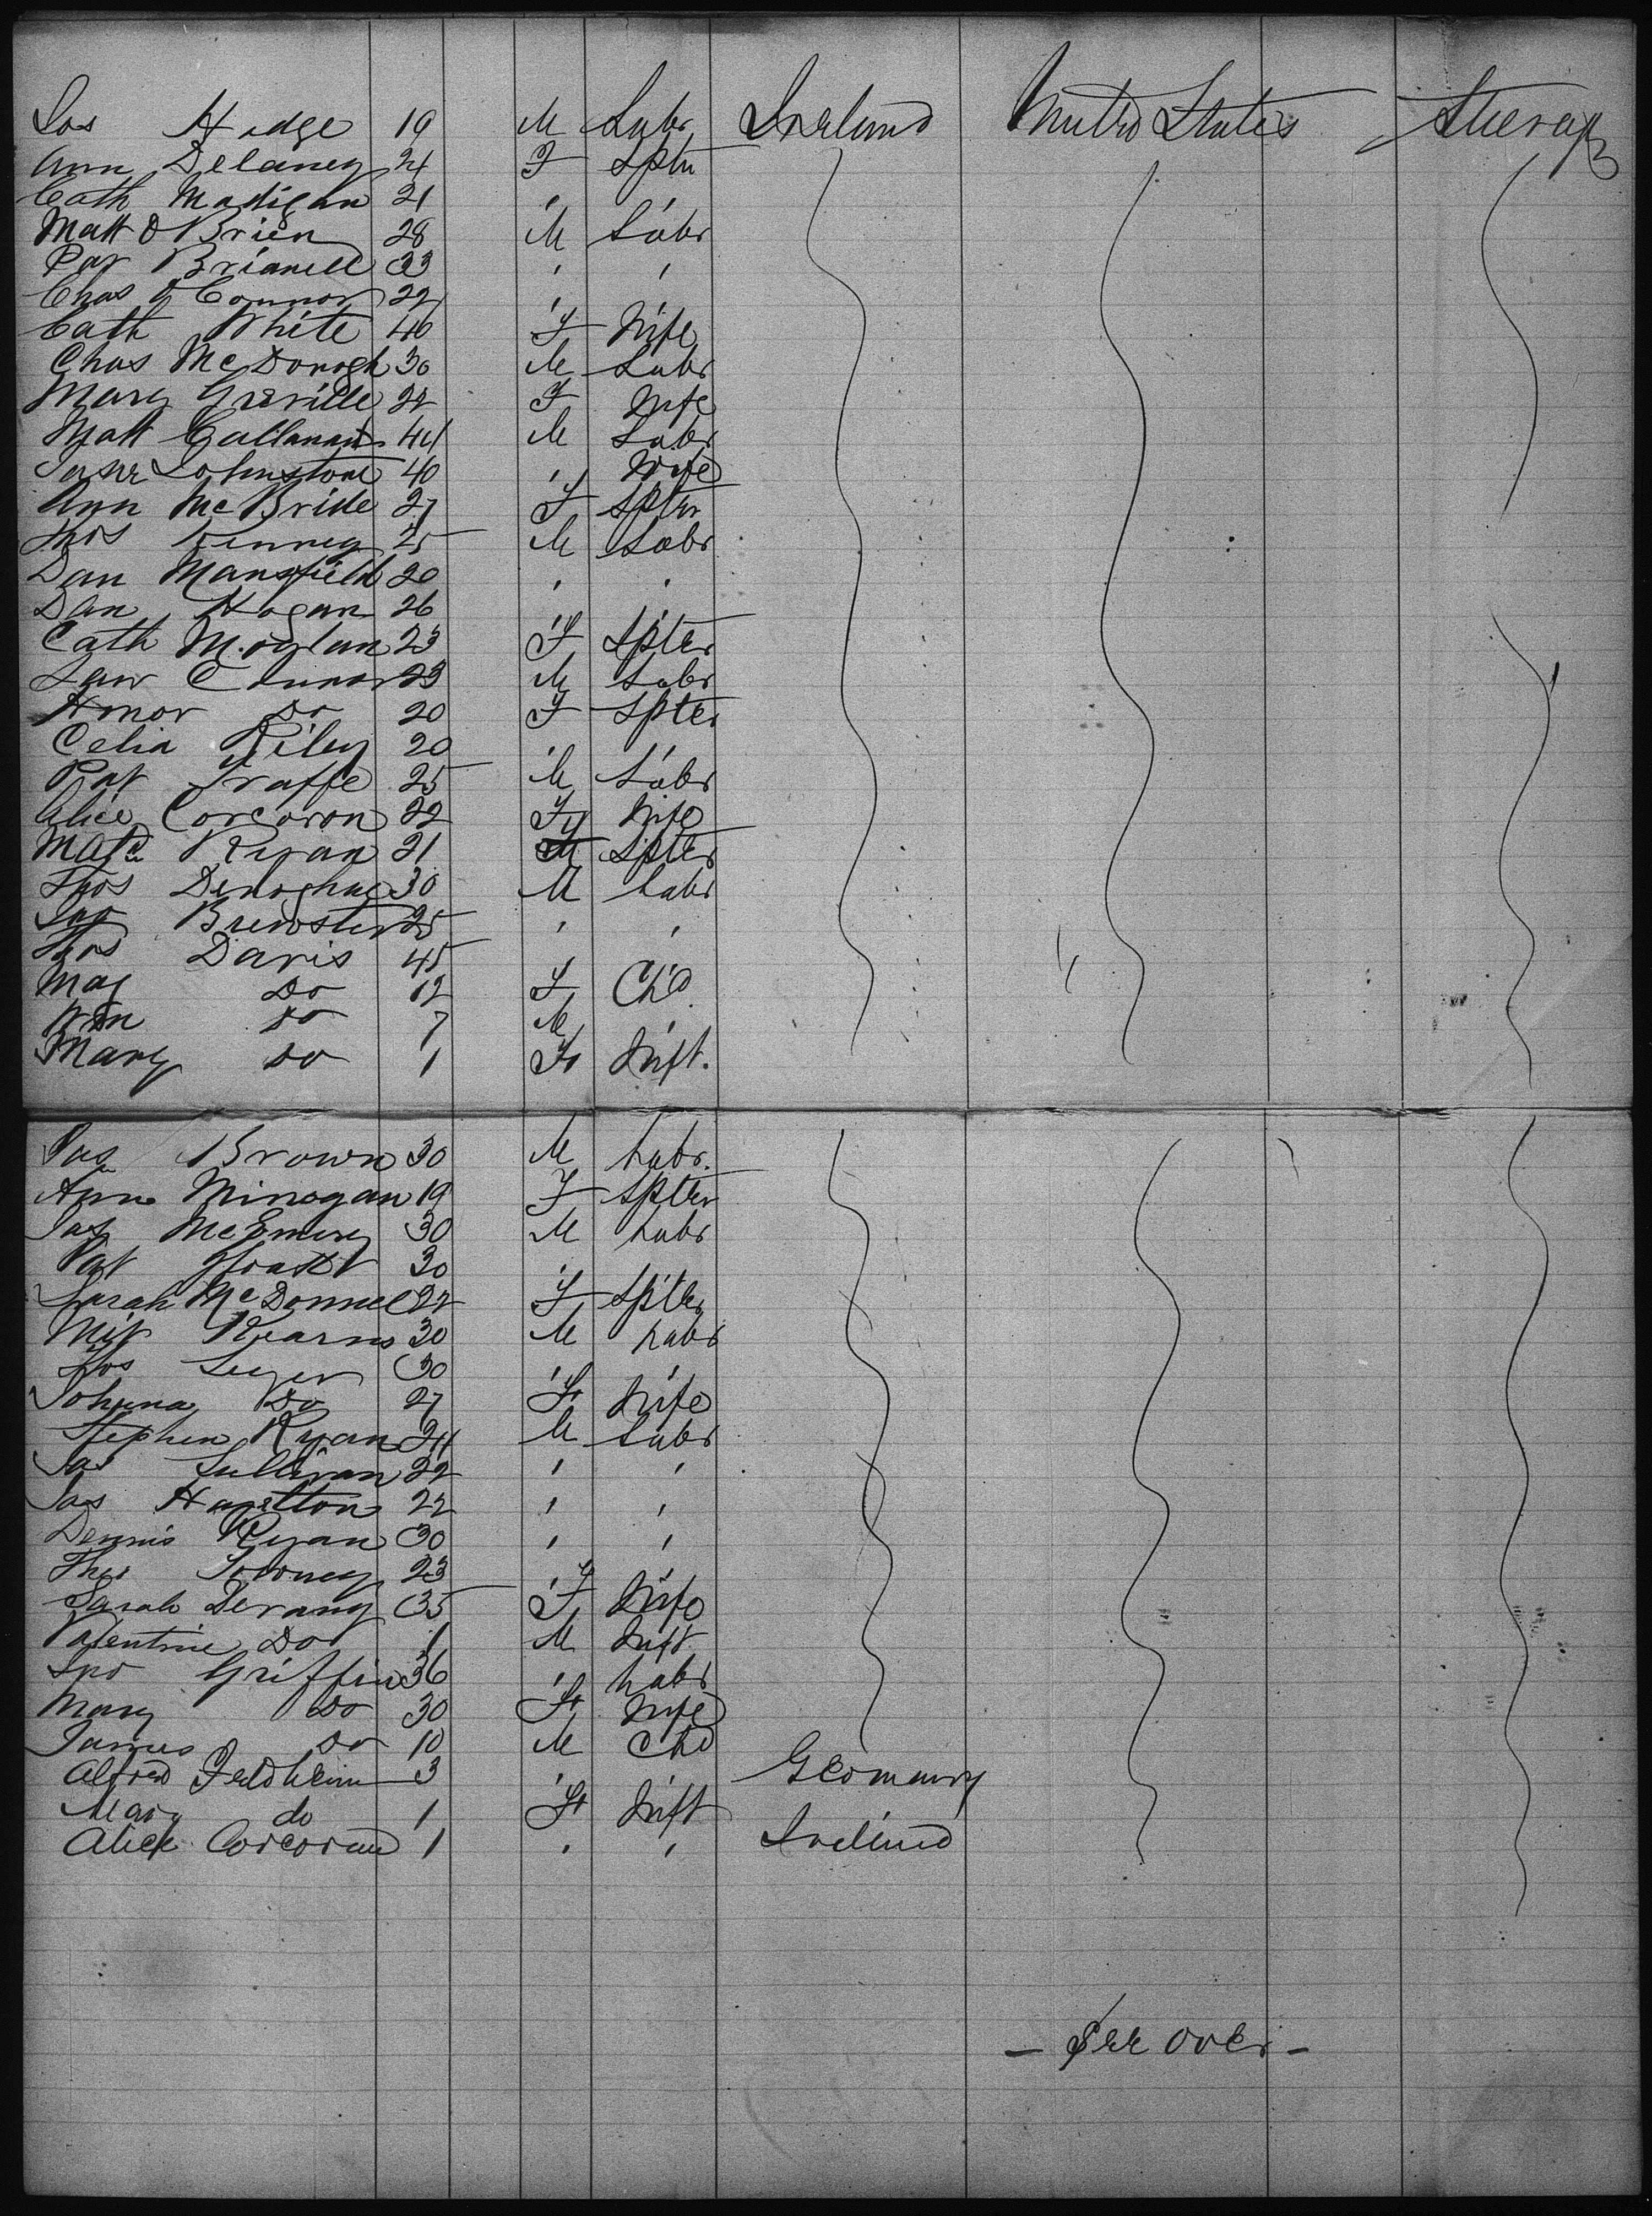 Jas Hodge 19 M Labr Ireland United States Steerage
Ann Delaney 24 F Sptr
Cath Madigan 21 " "
Matt O Brien 28 M Labr
Pat 33 " "
Chas O Connor 22 "
Cath White 40 F Wife
Chas McDonogh 30 M Labr
Mary Greville 22 F Wife
Matt Callanan 44 M Labr
Johnstone 40 " Wife
Ann McBride 27 F Sptr
Thos Kenney 25 M Labr
Dan Mansfield 20 " "
Dan Hogan 26 " "
Cath 23 F Spter
Law Connor 23 M Labr
Honor Do 20 F Spter
Celia Riley 20 " "
Pat 25 M Labr
Alice Corcoran 22 F Wife
Ryan 21 Spter
Thos Donoghue 30 M Labr
Jno Brewster 25 " "
Thos Davis 45 " "
Mag Do 12 F Chd
Wm Do 7 M "
Mary Do 1 F Inft.
Jas Brown 30 M Labr.
Ann Minogan 19 F Spter
Jas 30 M Labr
Pat 30 " "
Sarah McDonnel 22 F Spter
Kearns 30 M Labr
30 " "
Johanna Do 27 F Wife
Stephen Ryan 24 M Labr
Jas Sullivan 22 " "
Jas 22 " "
Dennis Ryan 30 " "
Thos 23 "
Sarah 35 F Wife
Valentine Do 1 M Inft
Jno Griffin 36 " Labr
Mary Do 30 F Wife
James Do 10 M Chd
Alfred Feldheim 3 " Geomany
Mary do 1 F Inft
Alick Corcoran 1 " " Ireland
- See over -